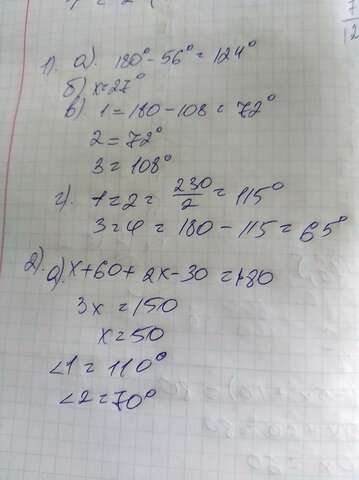 1). а). 180° - 56° = 124°
б) x = 27°
в) 1 = 180 - 108 = 72°
2 = 72°
3 = 108°
г). 1 = 2 = 230/2 = 115°
3 = 4 = 180 - 115 = 65°
2). а) x + 60 + 2x - 30 = 180
3x = 150
x = 50
<1 = 110°
<2 = 70°
7
12